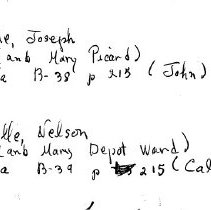 e, Joseph
and Mary Picard)
a B-38 p 215 (John)
lle, Nelson
and Mary Depot Ward)
a B-39 p 215 (Cal